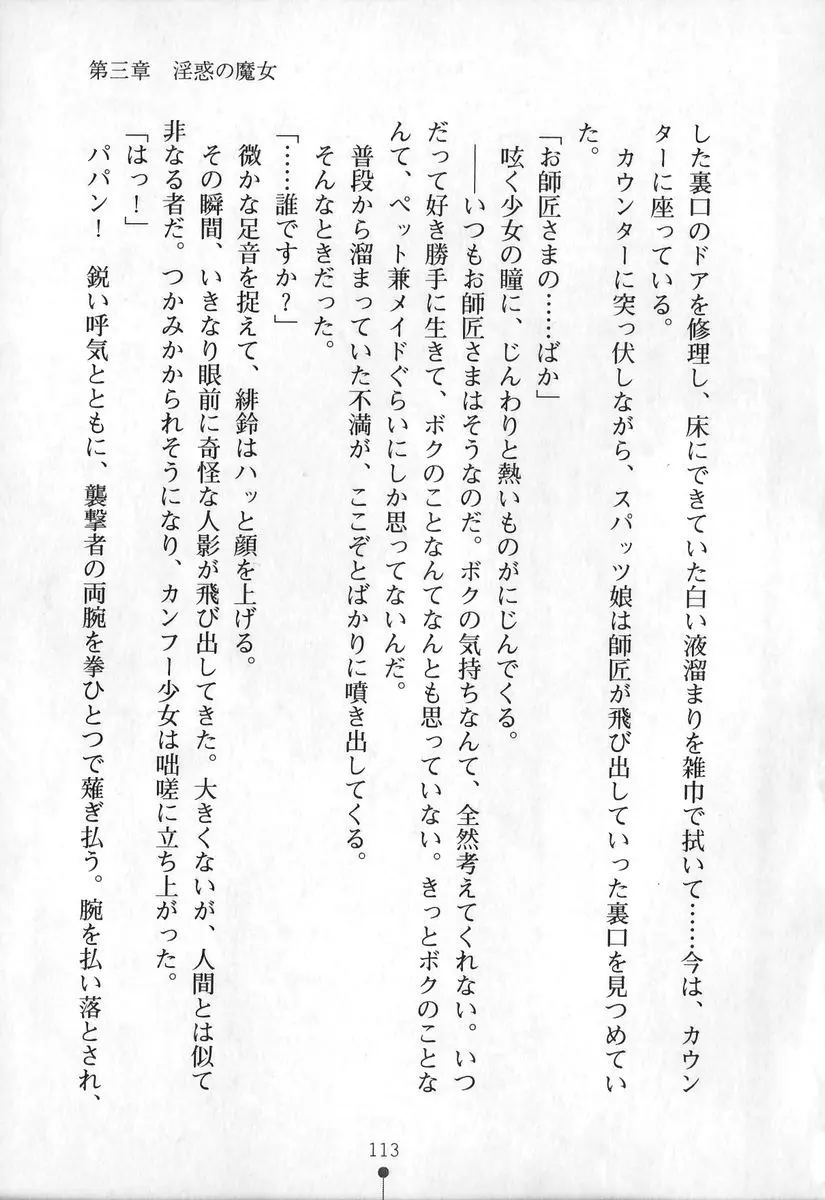 第三章　淫惑の魔女
した裏口のドアを修理し、床にできていた白い液溜まりを雑巾で拭いて……今は、カウン
ターに座っている。
　カウンターに突っ伏しながら、スパッツ娘は師匠が飛び出していった裏口を見つめてい
た。
「お師匠さまの……ばか」
　呟く少女の瞳に、じんわりと熱いものがにじんでくる。
　――いつもお師匠さまはそうなのだ。ボクの気持ちなんて、全然考えてくれない。いつ
だって好き勝手に生きて、ボクのことなんてなんとも思っていない。きっとボクのことな
んて、ペット兼メイドぐらいにしか思ってないんだ。
　普段から溜まっていた不満が、ここぞとばかりに噴き出してくる。
　そんなときだった。
「……誰ですか？」
　微かな足音を捉えて、緋鈴はハッと顔を上げる。
　その瞬間、いきなり眼前に奇怪な人影が飛び出してきた。大きくないが、人間とは似て
非なる者だ。つかみかかられそうになり、カンフー少女は咄嗟に立ち上がった。
「はっ！」
　パパン！　鋭い呼気とともに、襲撃者の両腕を拳ひとつで薙ぎ払う。腕を払い落とされ、
113